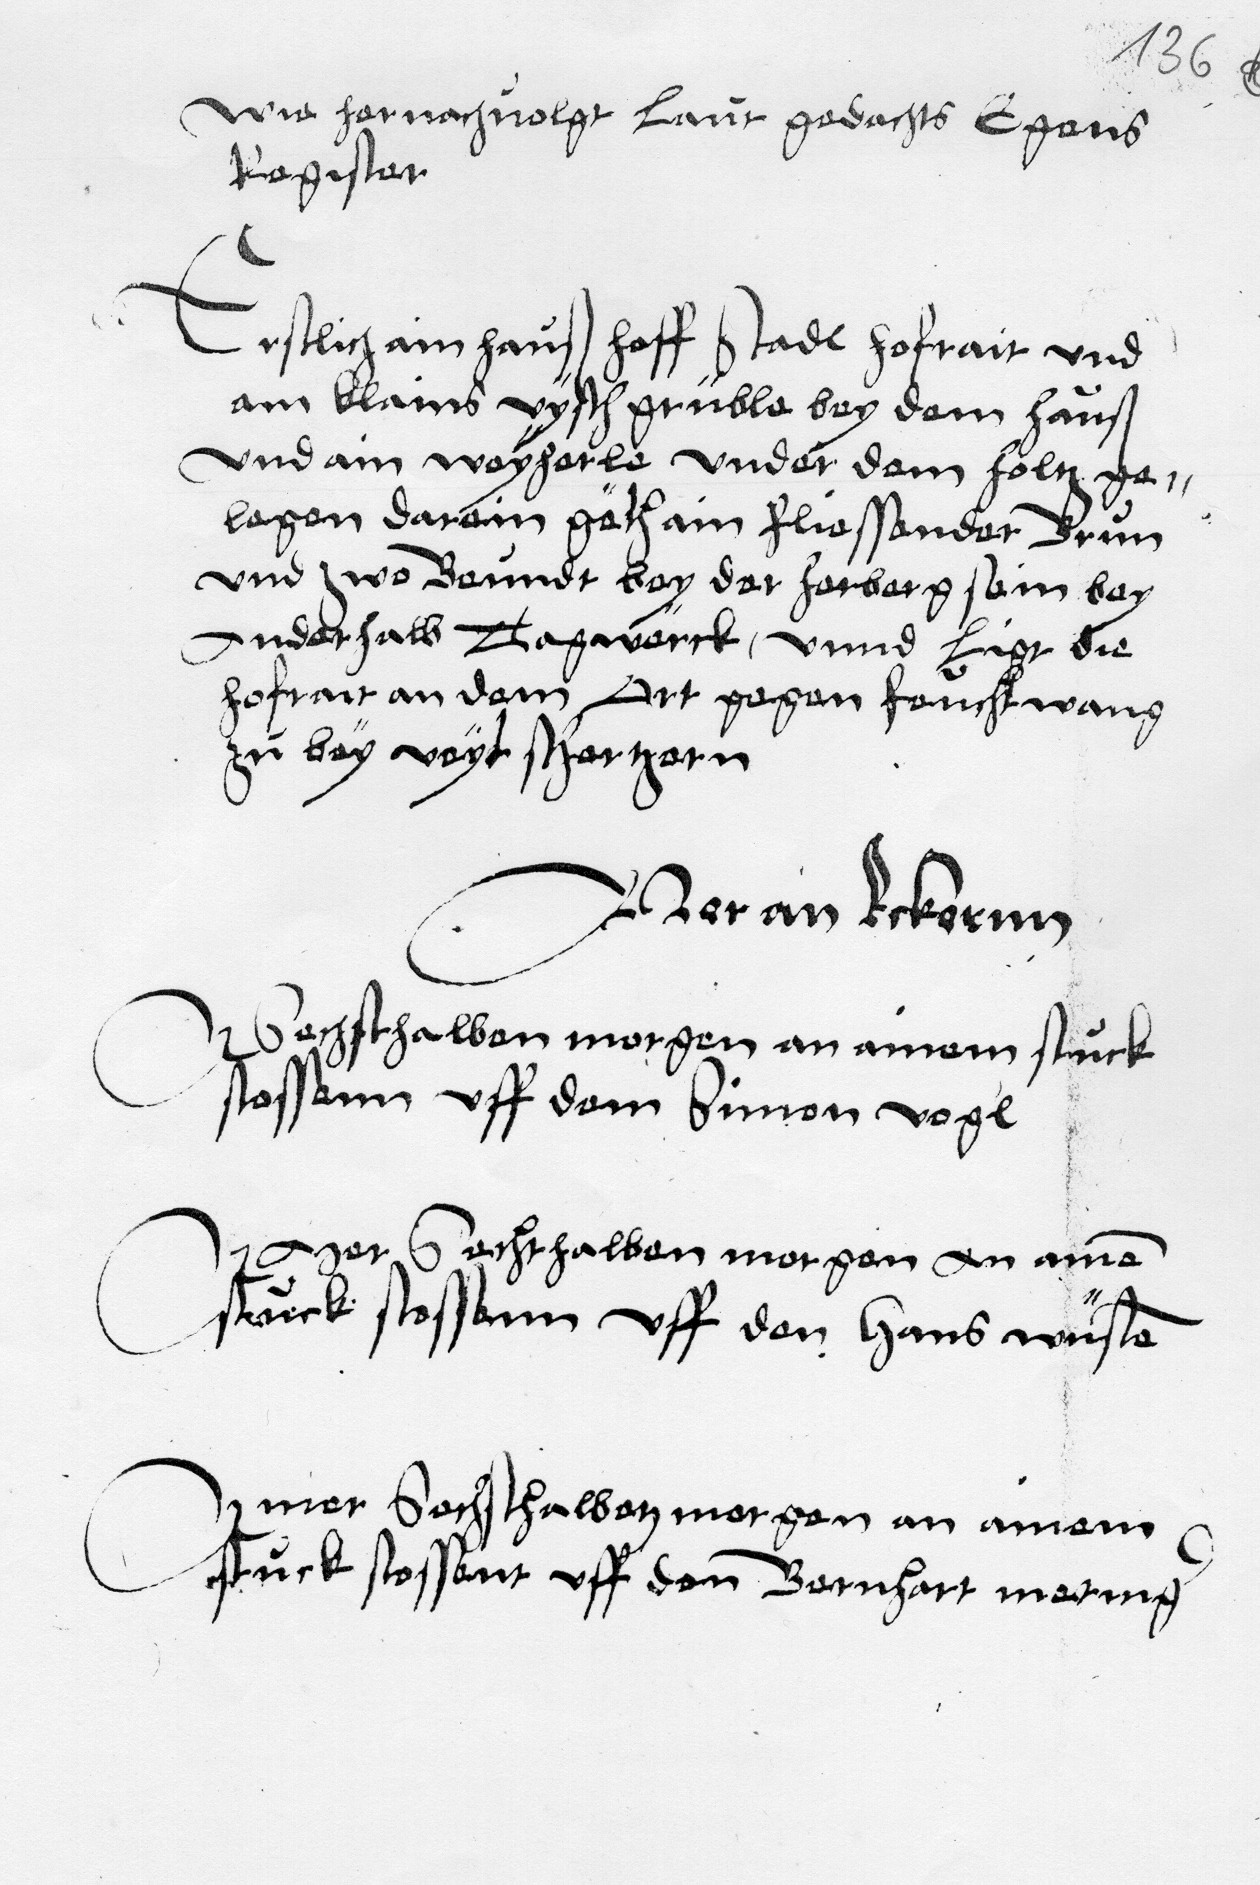 136
wie hernachuolgt Laut gedachts Egens
Register
Erstlich ain hauß hoff Stadl hofrait vnd
ain klains vÿsch grüble bey dem hauß
vnd ain weÿherle vnder dem holtz ge„
legen darein geth ain fliessender Brun
vnd zwo Beundt bey der herberg sein bey
Anderhalb Tagwerck, vnnd Ligt die
hofrait an dem Ort gegen feuchtwang
zu beÿ veÿt scherzern
Mer an Eckernn
Sechsthalben morgen an ainem stuck
stossenn vff dem Simon vogl
Mer Sechthalben morgen an aine̅
stuck stossenn vff den Hans wüste̅
mer Sechsthalben morgen an ainem
stuck stossent vff den Bernhart mering